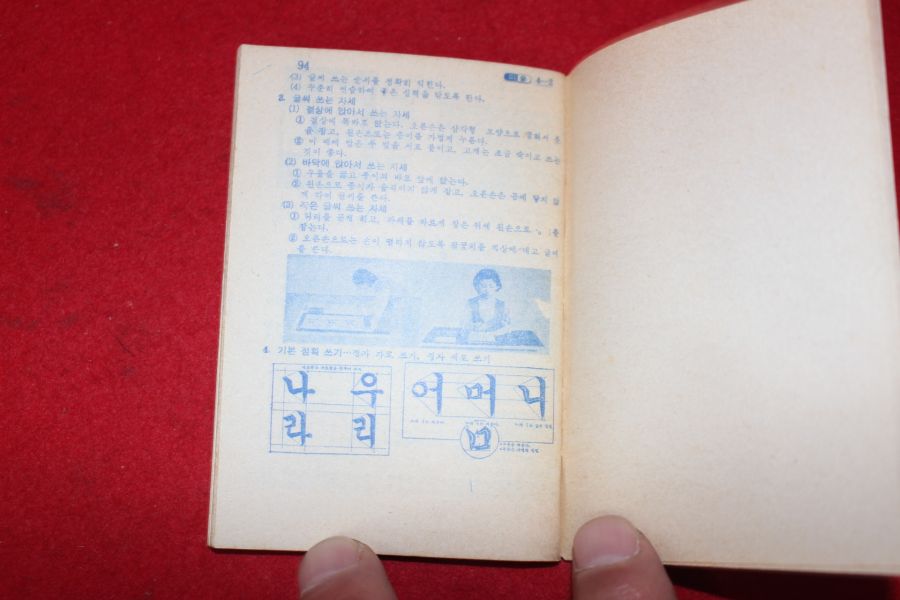 94
미술 4-2
(3) 글씨 쓰는 순서를 정확히 익힌다.
(4) 꾸준히 연습하여 좋은 실력을 닦도록 한다.
3. 글씨 쓰는 자세
(1) 걸상에 앉아서 쓰는 자세
① 걸상에 똑바로 앉는다. 오른손은 삼각형 모양으로
을 잡고, 왼손으로는 종이를 가볍게 누른다.
② 이 때에 양은 두 발을 서로 붙이고, 고개는 조금 숙이고 쓰는
것이 좋다.
(2) 바닥에 앉아서 쓰는 자세
① 무릎을 꿇고 종이의 바로 앞에 앉는다.
② 왼손으로 종이가 움직이지 않게 잡고, 오른손은 몸에 닿지 않
게 하여 글씨를 쓴다.
(3) 작은 글씨 쓰는 자세
① 허리를 곧게 펴고, 자세를 바르게 잡은 뒤에 왼손으로
잡는다.
② 오른손으로는 손이 떨리지 않도록 팔꿈치를 책상에 대고 글씨
를 쓴다.
4. 기본 점획 쓰기…정자 가로 쓰기, 정자 세로 쓰기
나 우
라 리
어 머 니
머